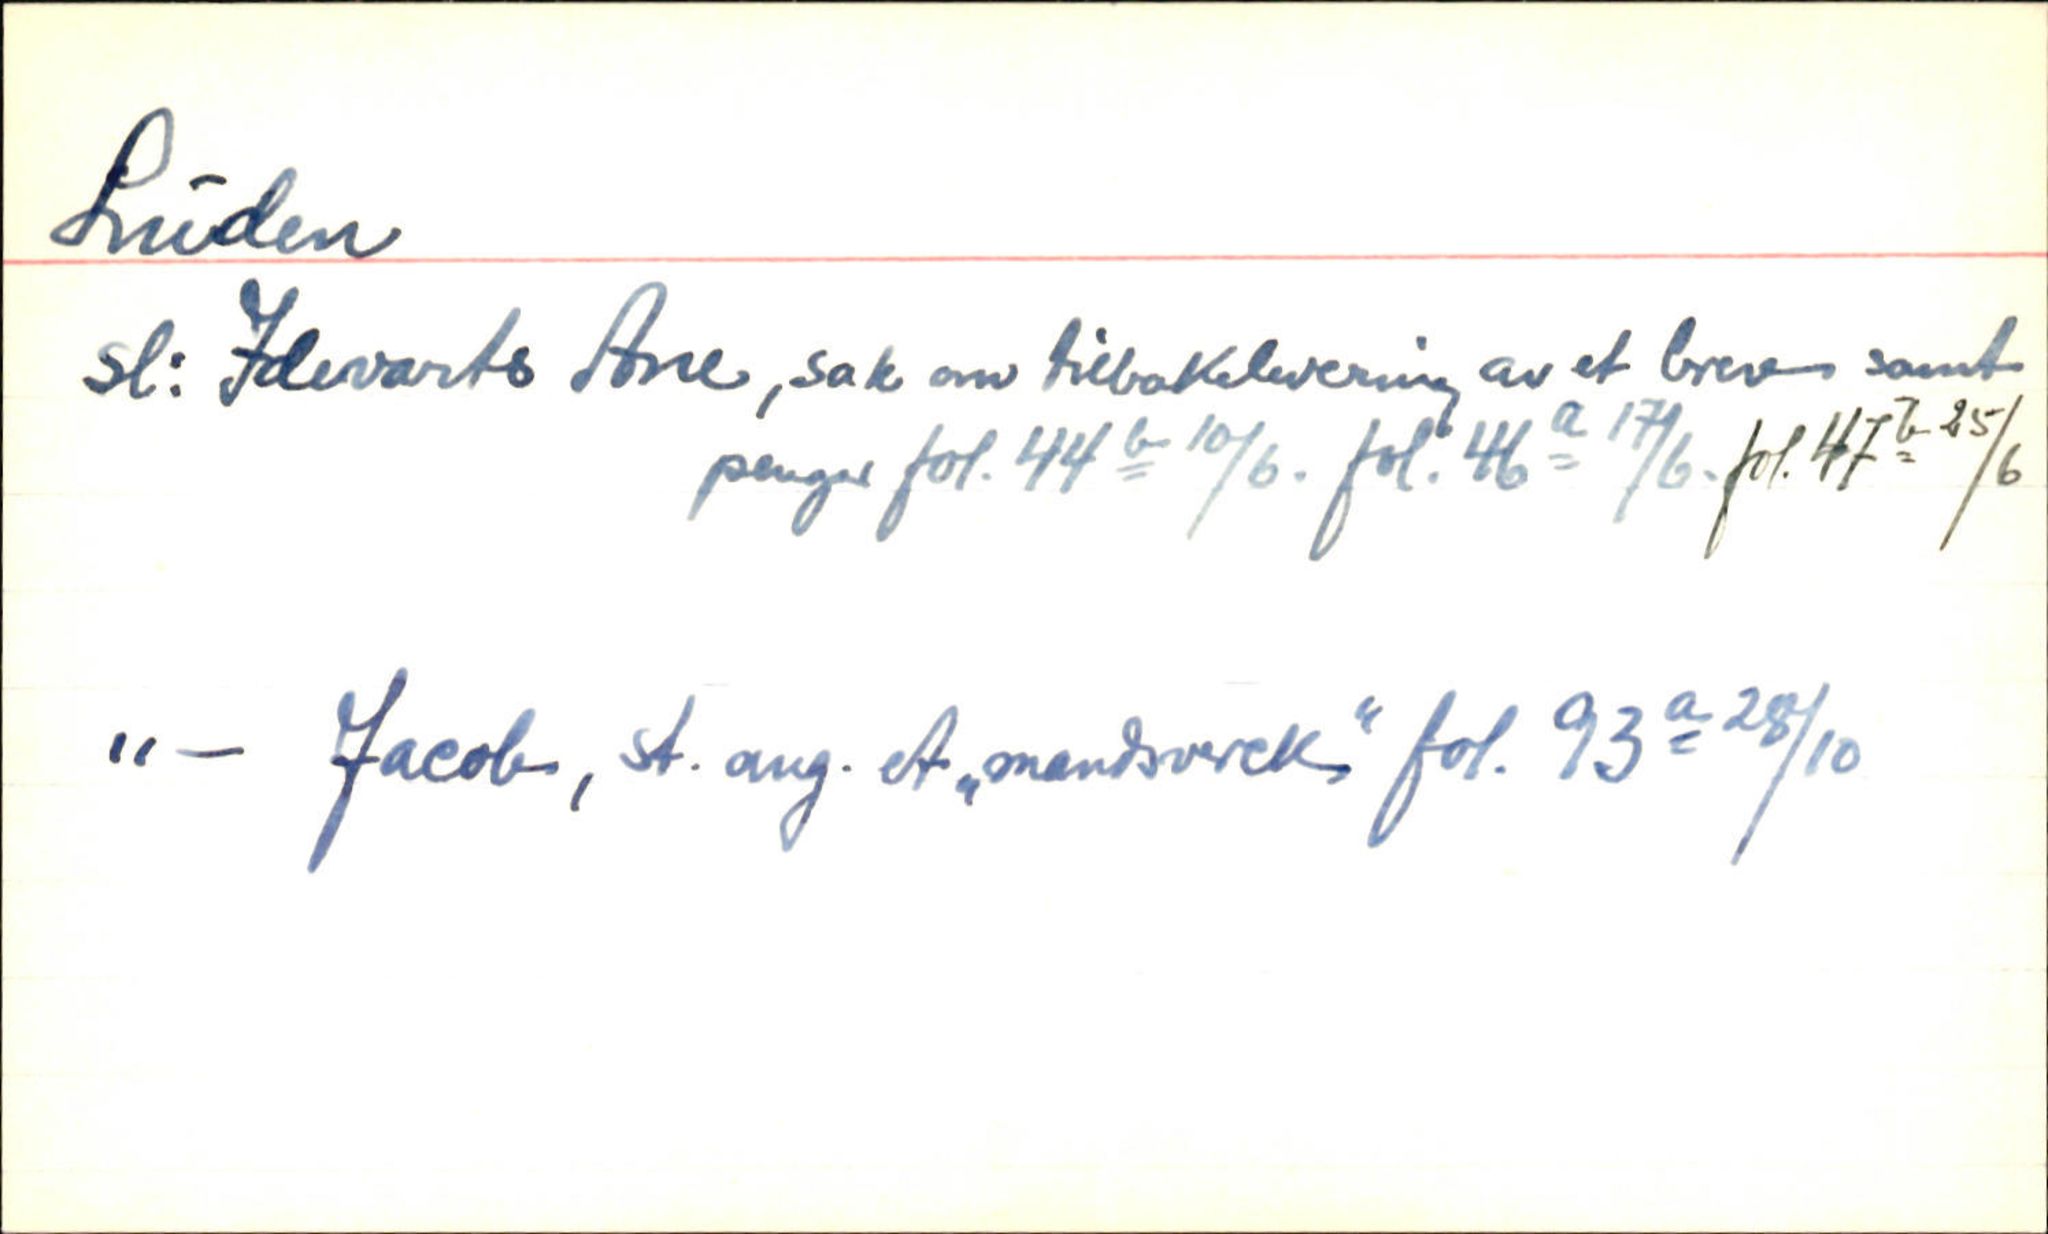 Lüden
sl: Idevarts Ane, sak om tilbakelevering av et brev samt
penger fol. 44 b 10/6. fol. 46 a 17/6. fol. 47 b 25/6
"— Jacob, st. ang. et „mandsverck" fol. 93 a 28/10